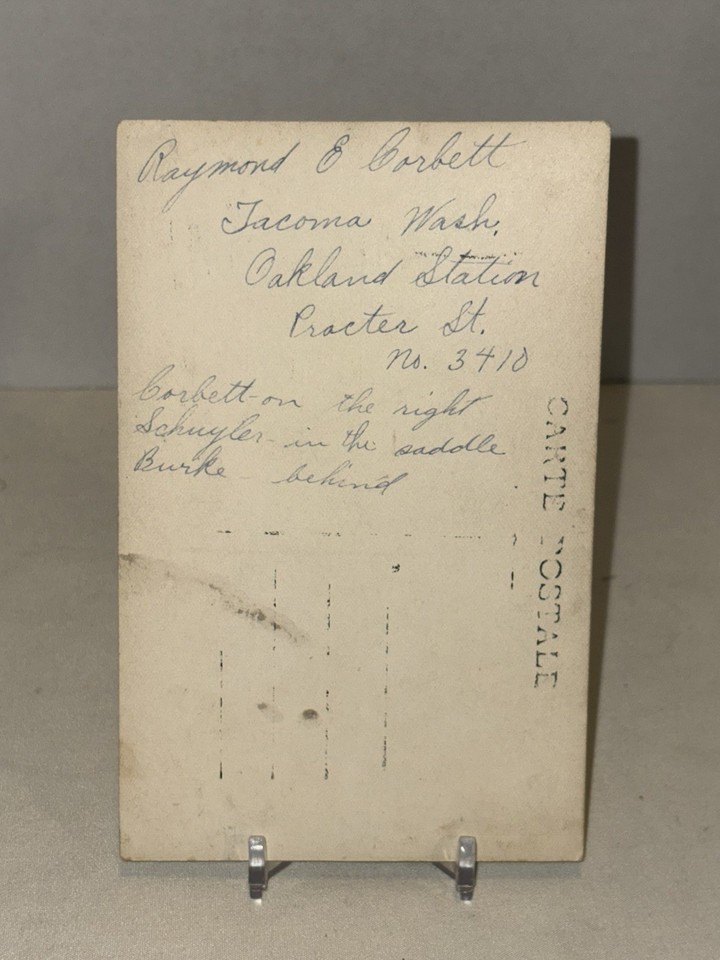 Raymond E Corbett
Tacoma Wash.
Oakland Station
Procter St.
No. 3410
Corbett - on the right
Schuyler - in the saddle
Burke - behind
CARTE POSTALE